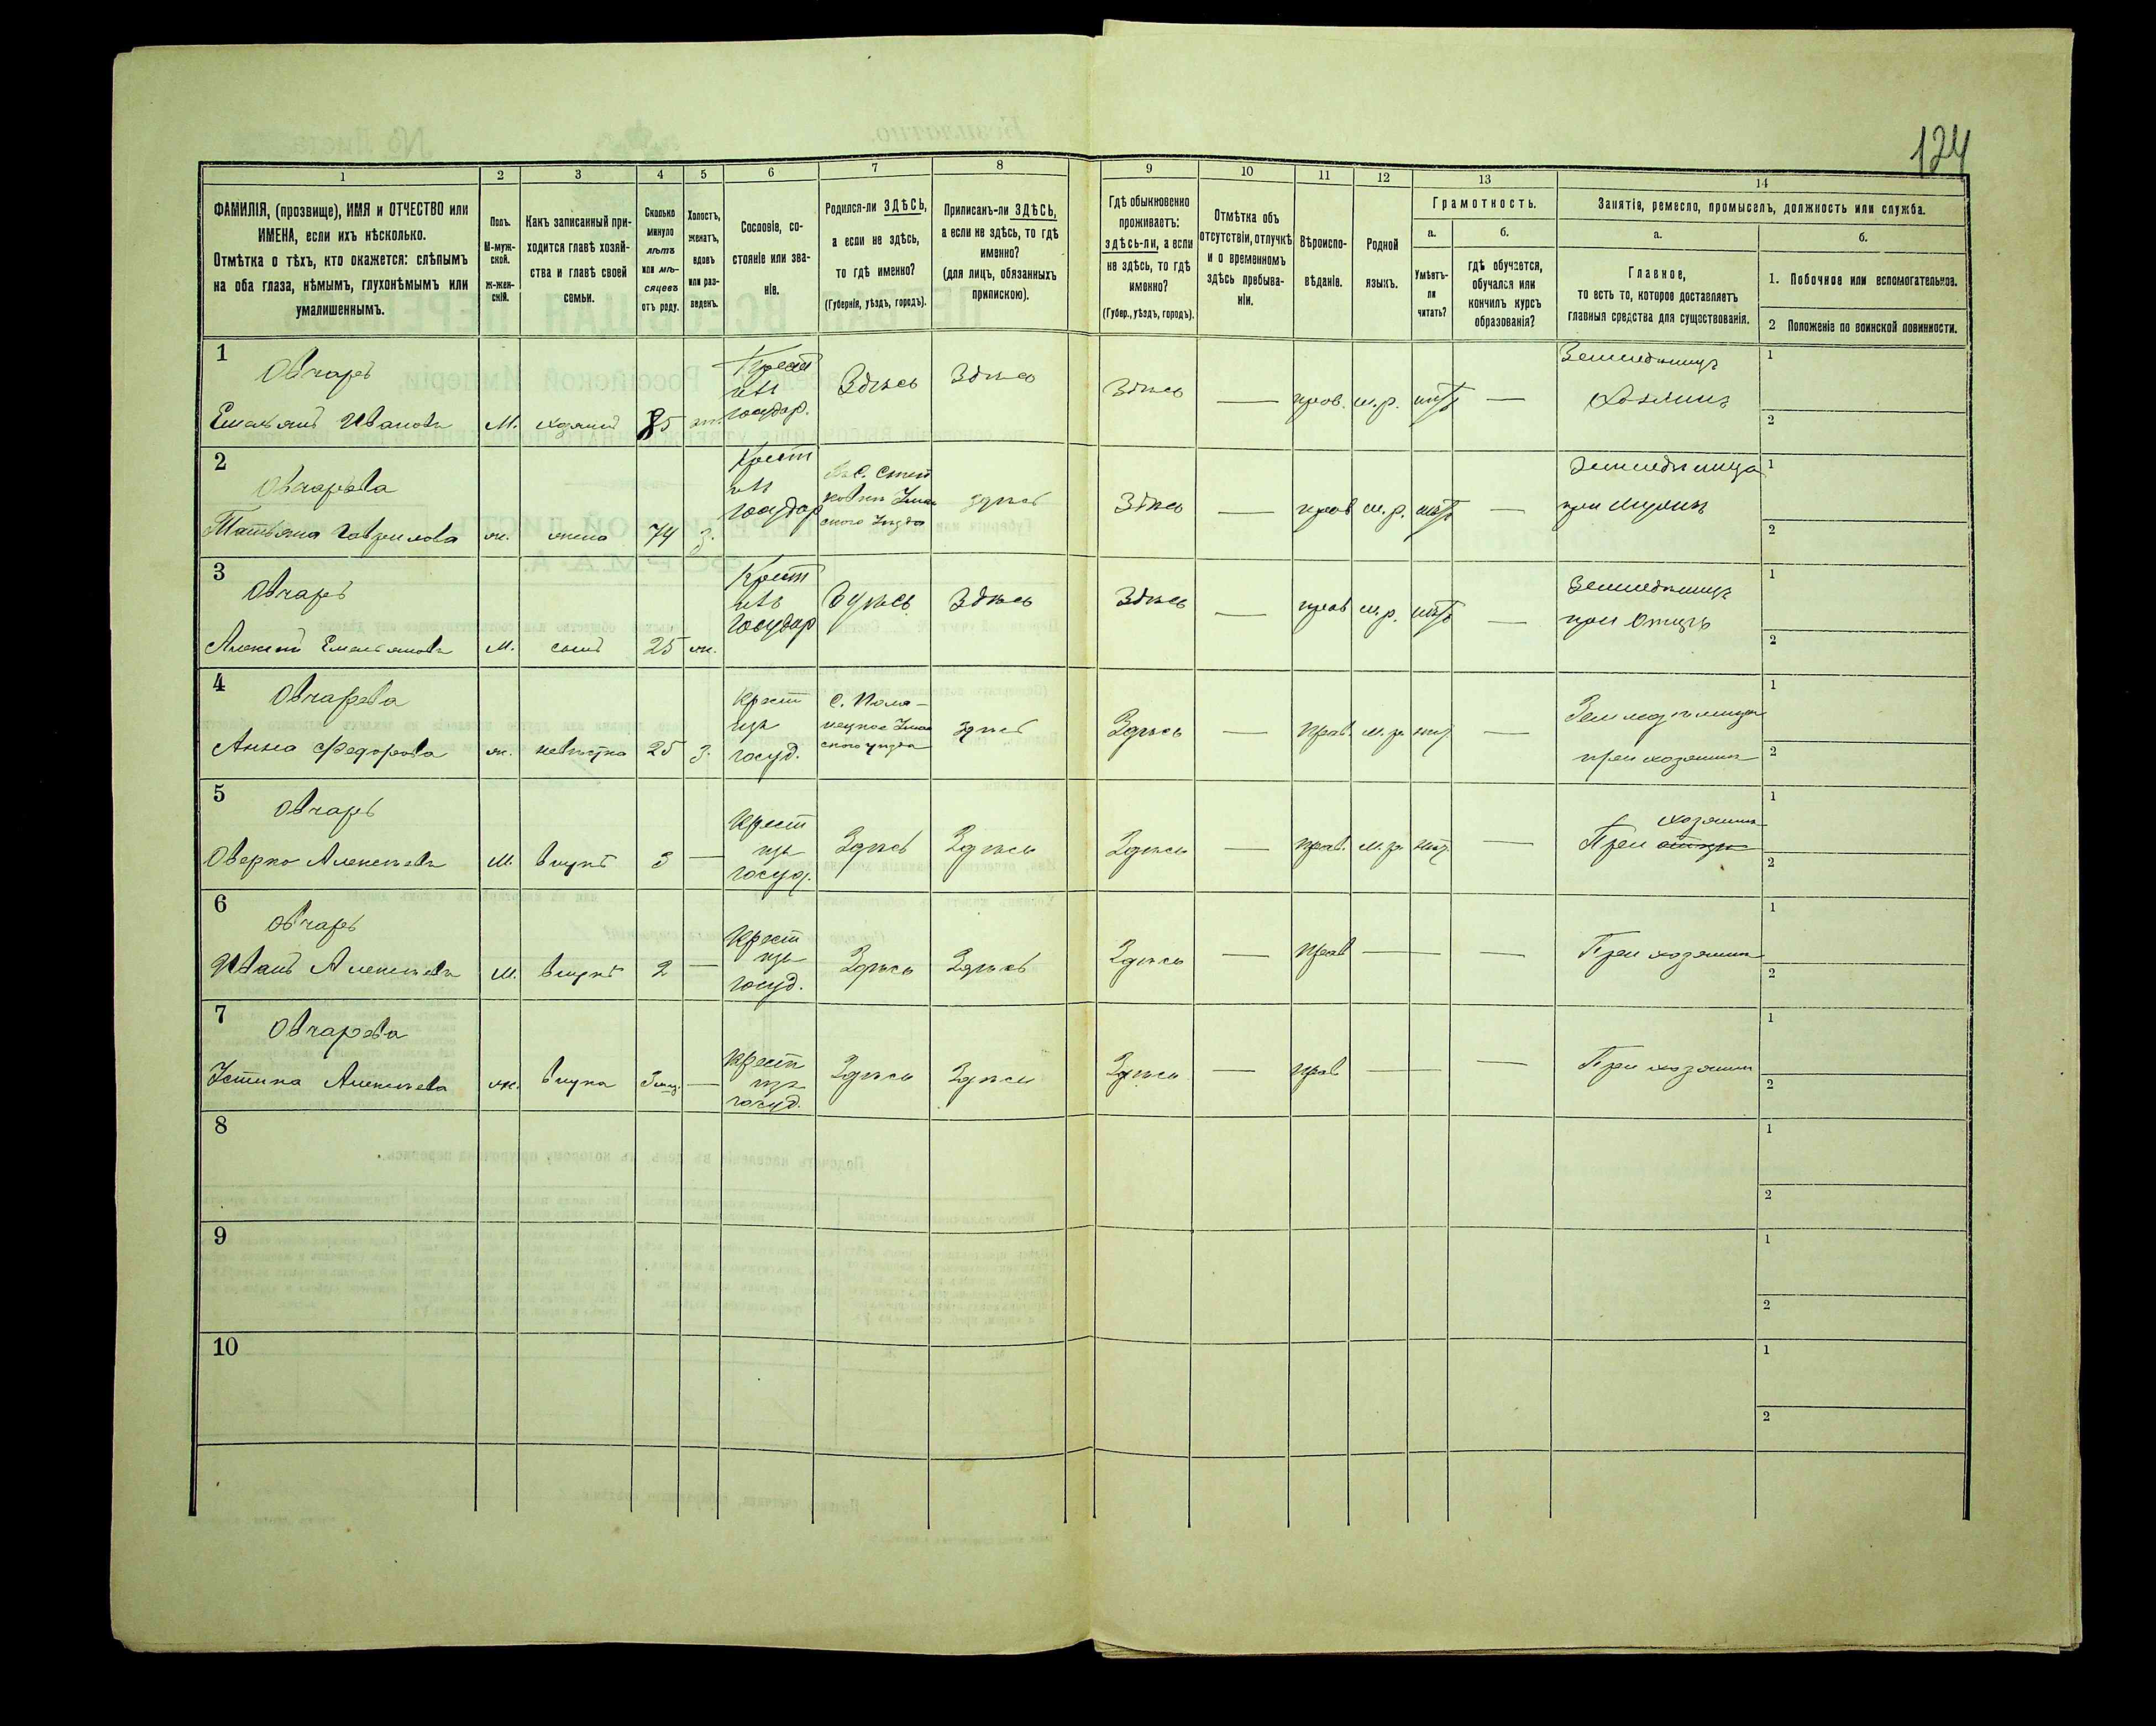 124
1 2 3 4 5 6 7 8 9 10 11 12 13 14
ФАМИЛІЯ, (прозвище), ИМЯ и ОТЧЕСТВО или
ИМЕНА, если ихъ нѣсколько.
Отмѣтка о тѣхъ, кто окажется: слѣпымъ
на оба глаза, нѣмымъ, глухонѣмымъ или
умалишеннымъ.
Полъ.
М-муж-
ской.
Ж-жен-
скій.
Какъ записанный при-
ходится главѣ хозяй-
ства и главѣ своей
семьи.
Сколько
минуло
лѣтъ
или мѣ-
сяцевъ
отъ роду.
Холостъ,
женатъ,
вдовъ
или раз-
веденъ.
Сословіе, со-
стояніе или зва-
ніе.
Родился-ли ЗДѢСЬ,
а если не здѣсь,
то гдѣ именно?
(Губернія, уѣздъ, городъ).
Приписанъ-ли ЗДѢСЬ,
а если не здѣсь, то гдѣ
именно?
(для лицъ, обязанныхъ
припискою).
Гдѣ обыкновенно
проживаетъ:
здѣсь-ли, а если
не здѣсь, то гдѣ
именно?
(Губер., уѣздъ, городъ).
Отмѣтка объ
отсутствіи, отлучкѣ
и о временномъ
здѣсь пребыва-
ніи.
Вѣроиспо-
вѣданіе.
Родной
языкъ.
Грамотность.
а.
Умѣетъ-
ли
читать?
б.
гдѣ обучается,
обучался или
кончилъ курсъ
образованія?
Занятіе, ремесло, промыселъ, должность или служба.
а.
Главное,
то есть то, которое доставляетъ
главныя средства для существованія.
б.
1. Побочное или вспомогательное.
2 Положеніе по воинской повинности.
1
Овчаръ
Емельянъ Ивановъ М. хозяинъ 85 жен.
Крест
изъ
государ.
Здѣсь Здѣсь Здѣсь — прав. м.р. нѣтъ —
Земледѣлецъ
Хозяинъ
1
2
2
Овчарева
Татьяна Гаврилова ж. жена 74 з.
Крест
изъ
государ
скаго Уѣзда
здѣсь Здѣсь — прав м.р. нѣтъ —
Земледѣлица
при мужѣ
1
2
3
Овчаръ
Алексѣй Емельяновъ М. сынъ 25 ж.
Крест
изъ
Государ
Здѣсь Здѣсь Здѣсь — прав м.р. нѣтъ —
Земледѣлецъ
при Отцѣ
1
2
4
Овчарева
Анна Федорова ж. невѣстка 25 з.
Крест
изъ
госуд.
скаго уѣзда
здѣсь Здѣсь — Прав. м.р. нѣтъ —
Земледѣлица
при хозяинѣ
1
2
5
Овчаръ
Оверко Алексѣевъ М. внукъ 3 —
Крест
изъ
госуд.
Здѣсь Здѣсь Здѣсь — прав. м.р. нѣт. —
хозяинѣ
При отцѣ
1
2
6
Овчаръ
Иванъ Алексѣевъ М. внукъ 2 —
Крест
изъ
госуд.
Здѣсь Здѣсь Здѣсь — Прав — —
При хозяинѣ
1
2
7
Овчарева
Устина Алексѣева ж. внука 3 мѣс. —
Крест
изъ
госуд.
Здѣсь Здѣсь Здѣсь — прав — —
При хозяинѣ
1
2
8
1
2
9
1
2
10
1
2